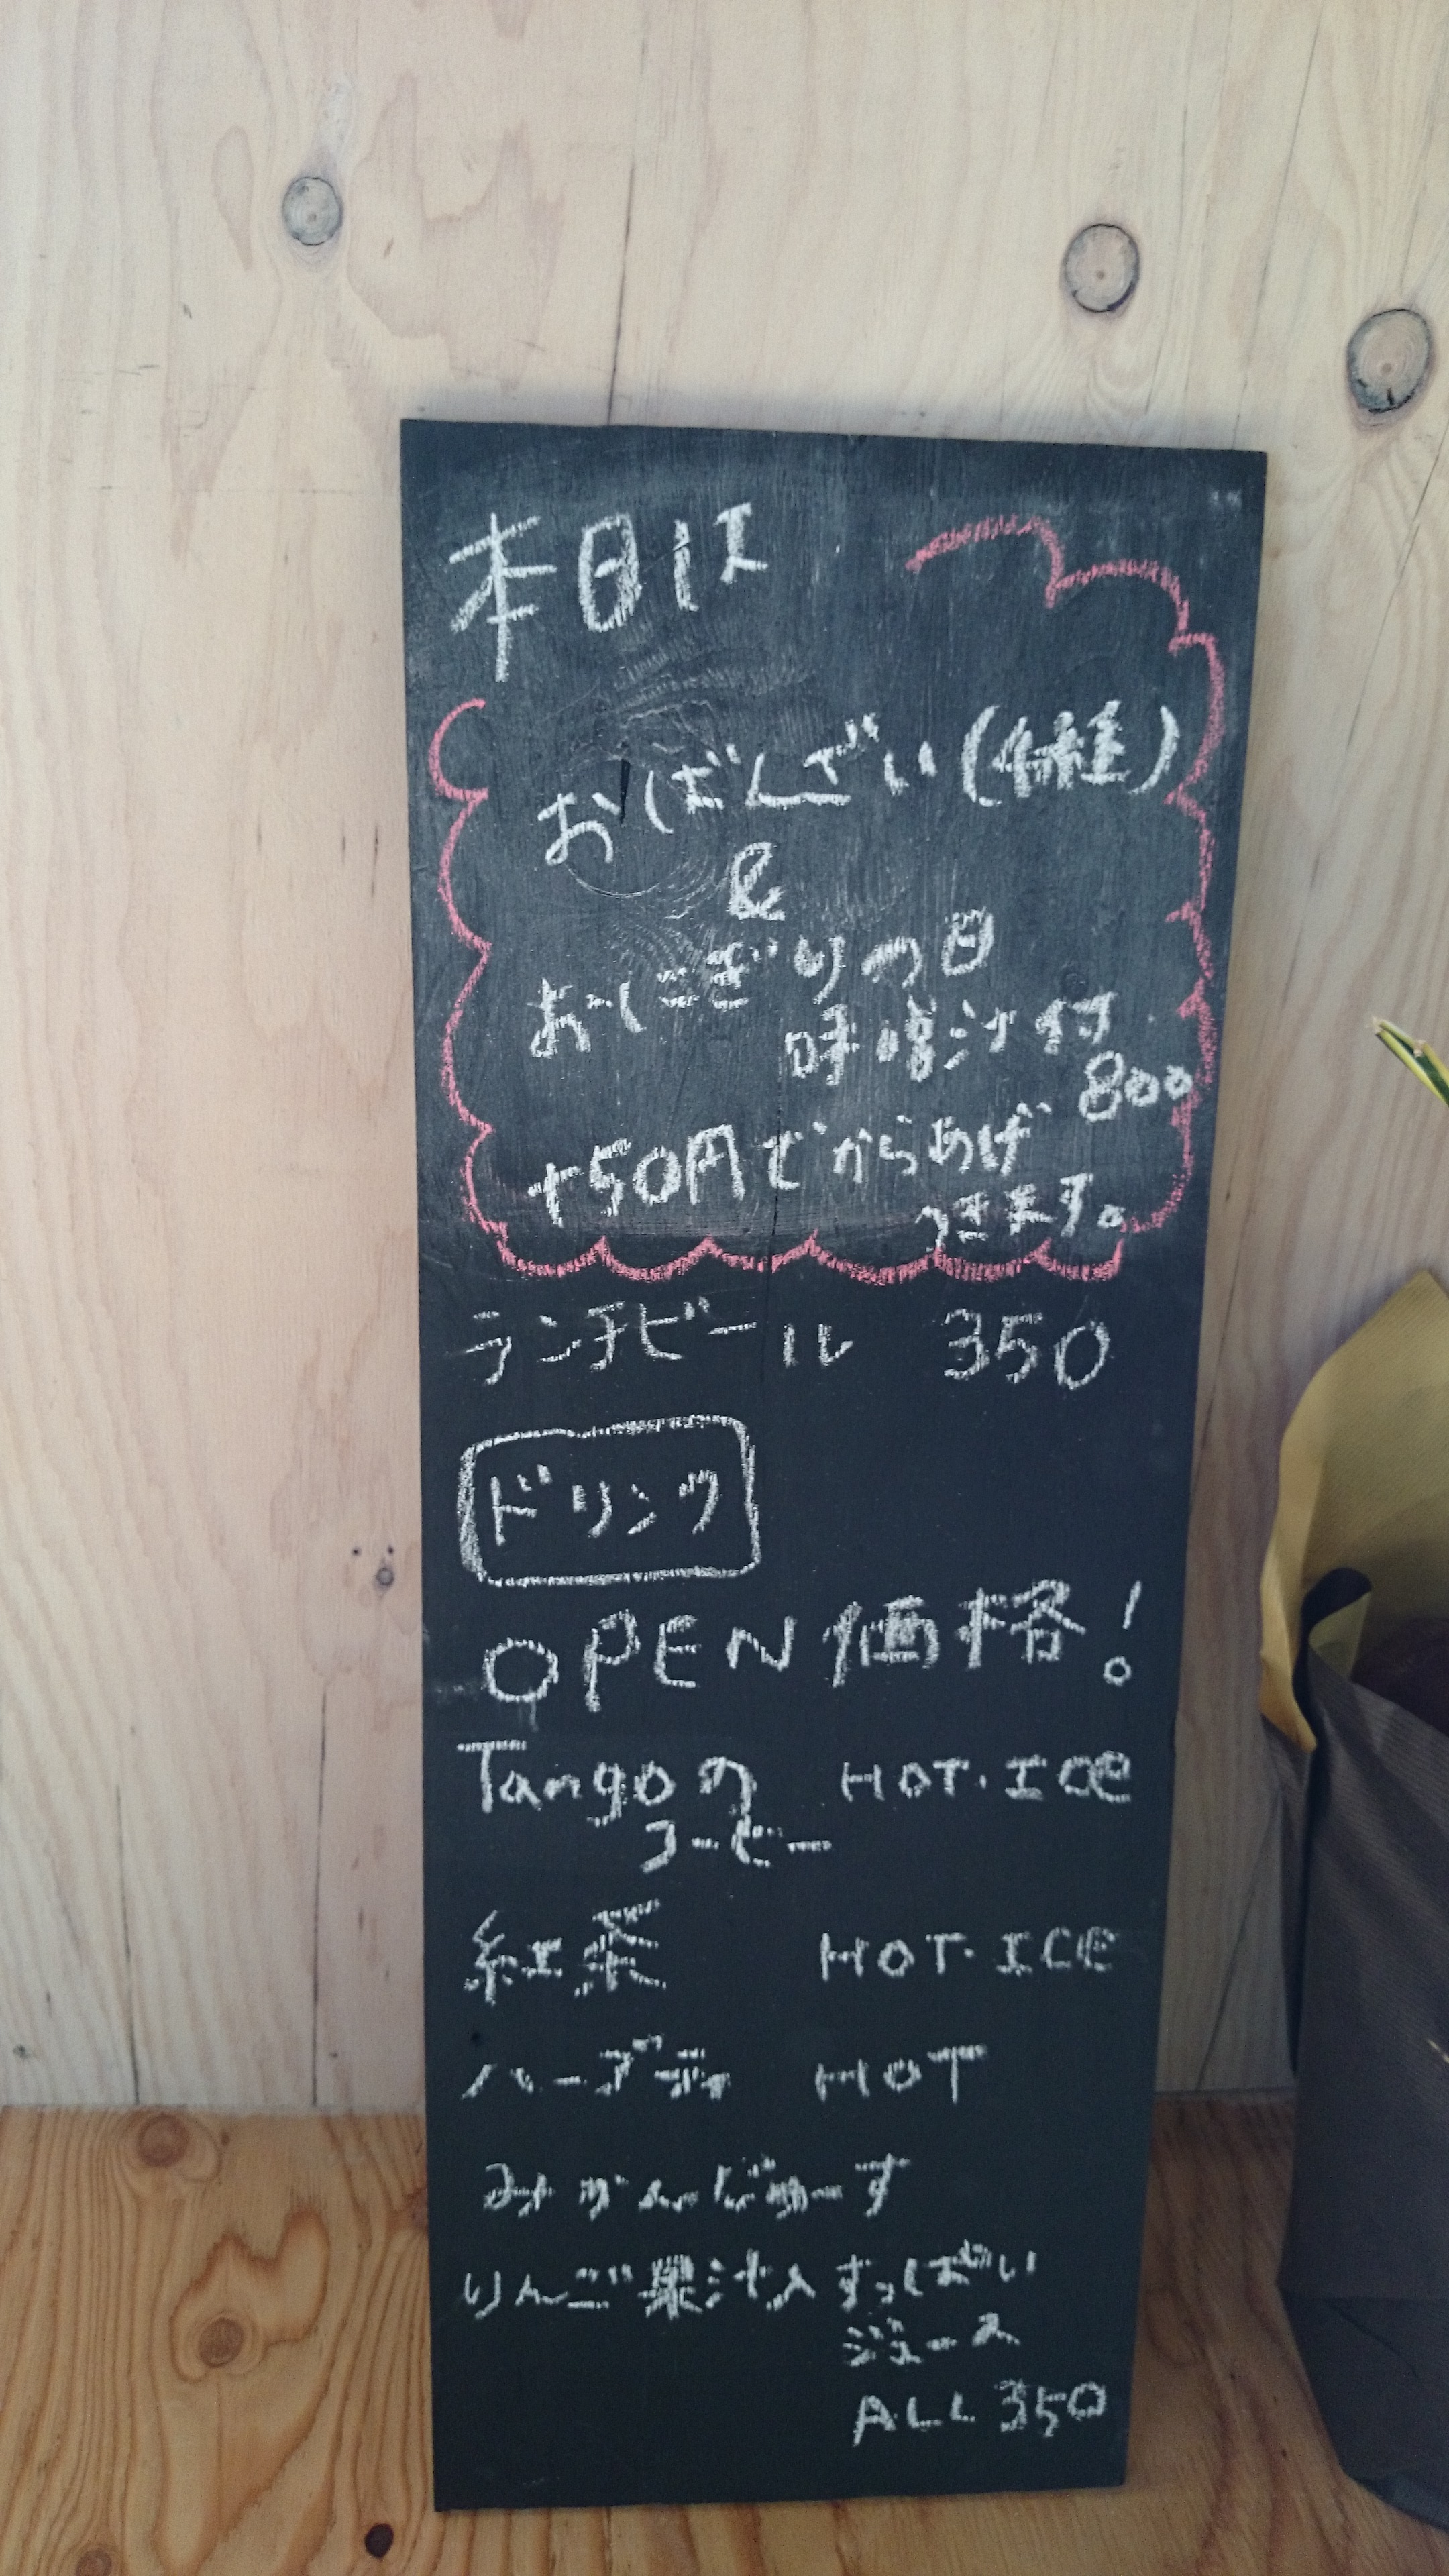 本日は
おばんざい(4種)
&
おにぎりの日
味噌汁付
800
+50円でからあげ
つきます。
ランチビール 350
ドリンク
OPEN価格!
Tangoの HOT・ICE
コーヒー
紅茶 HOT・ICE
ハーブティ HOT
みかんじゅーす
りんご果汁入すっぱい
ジュース
ALL 350